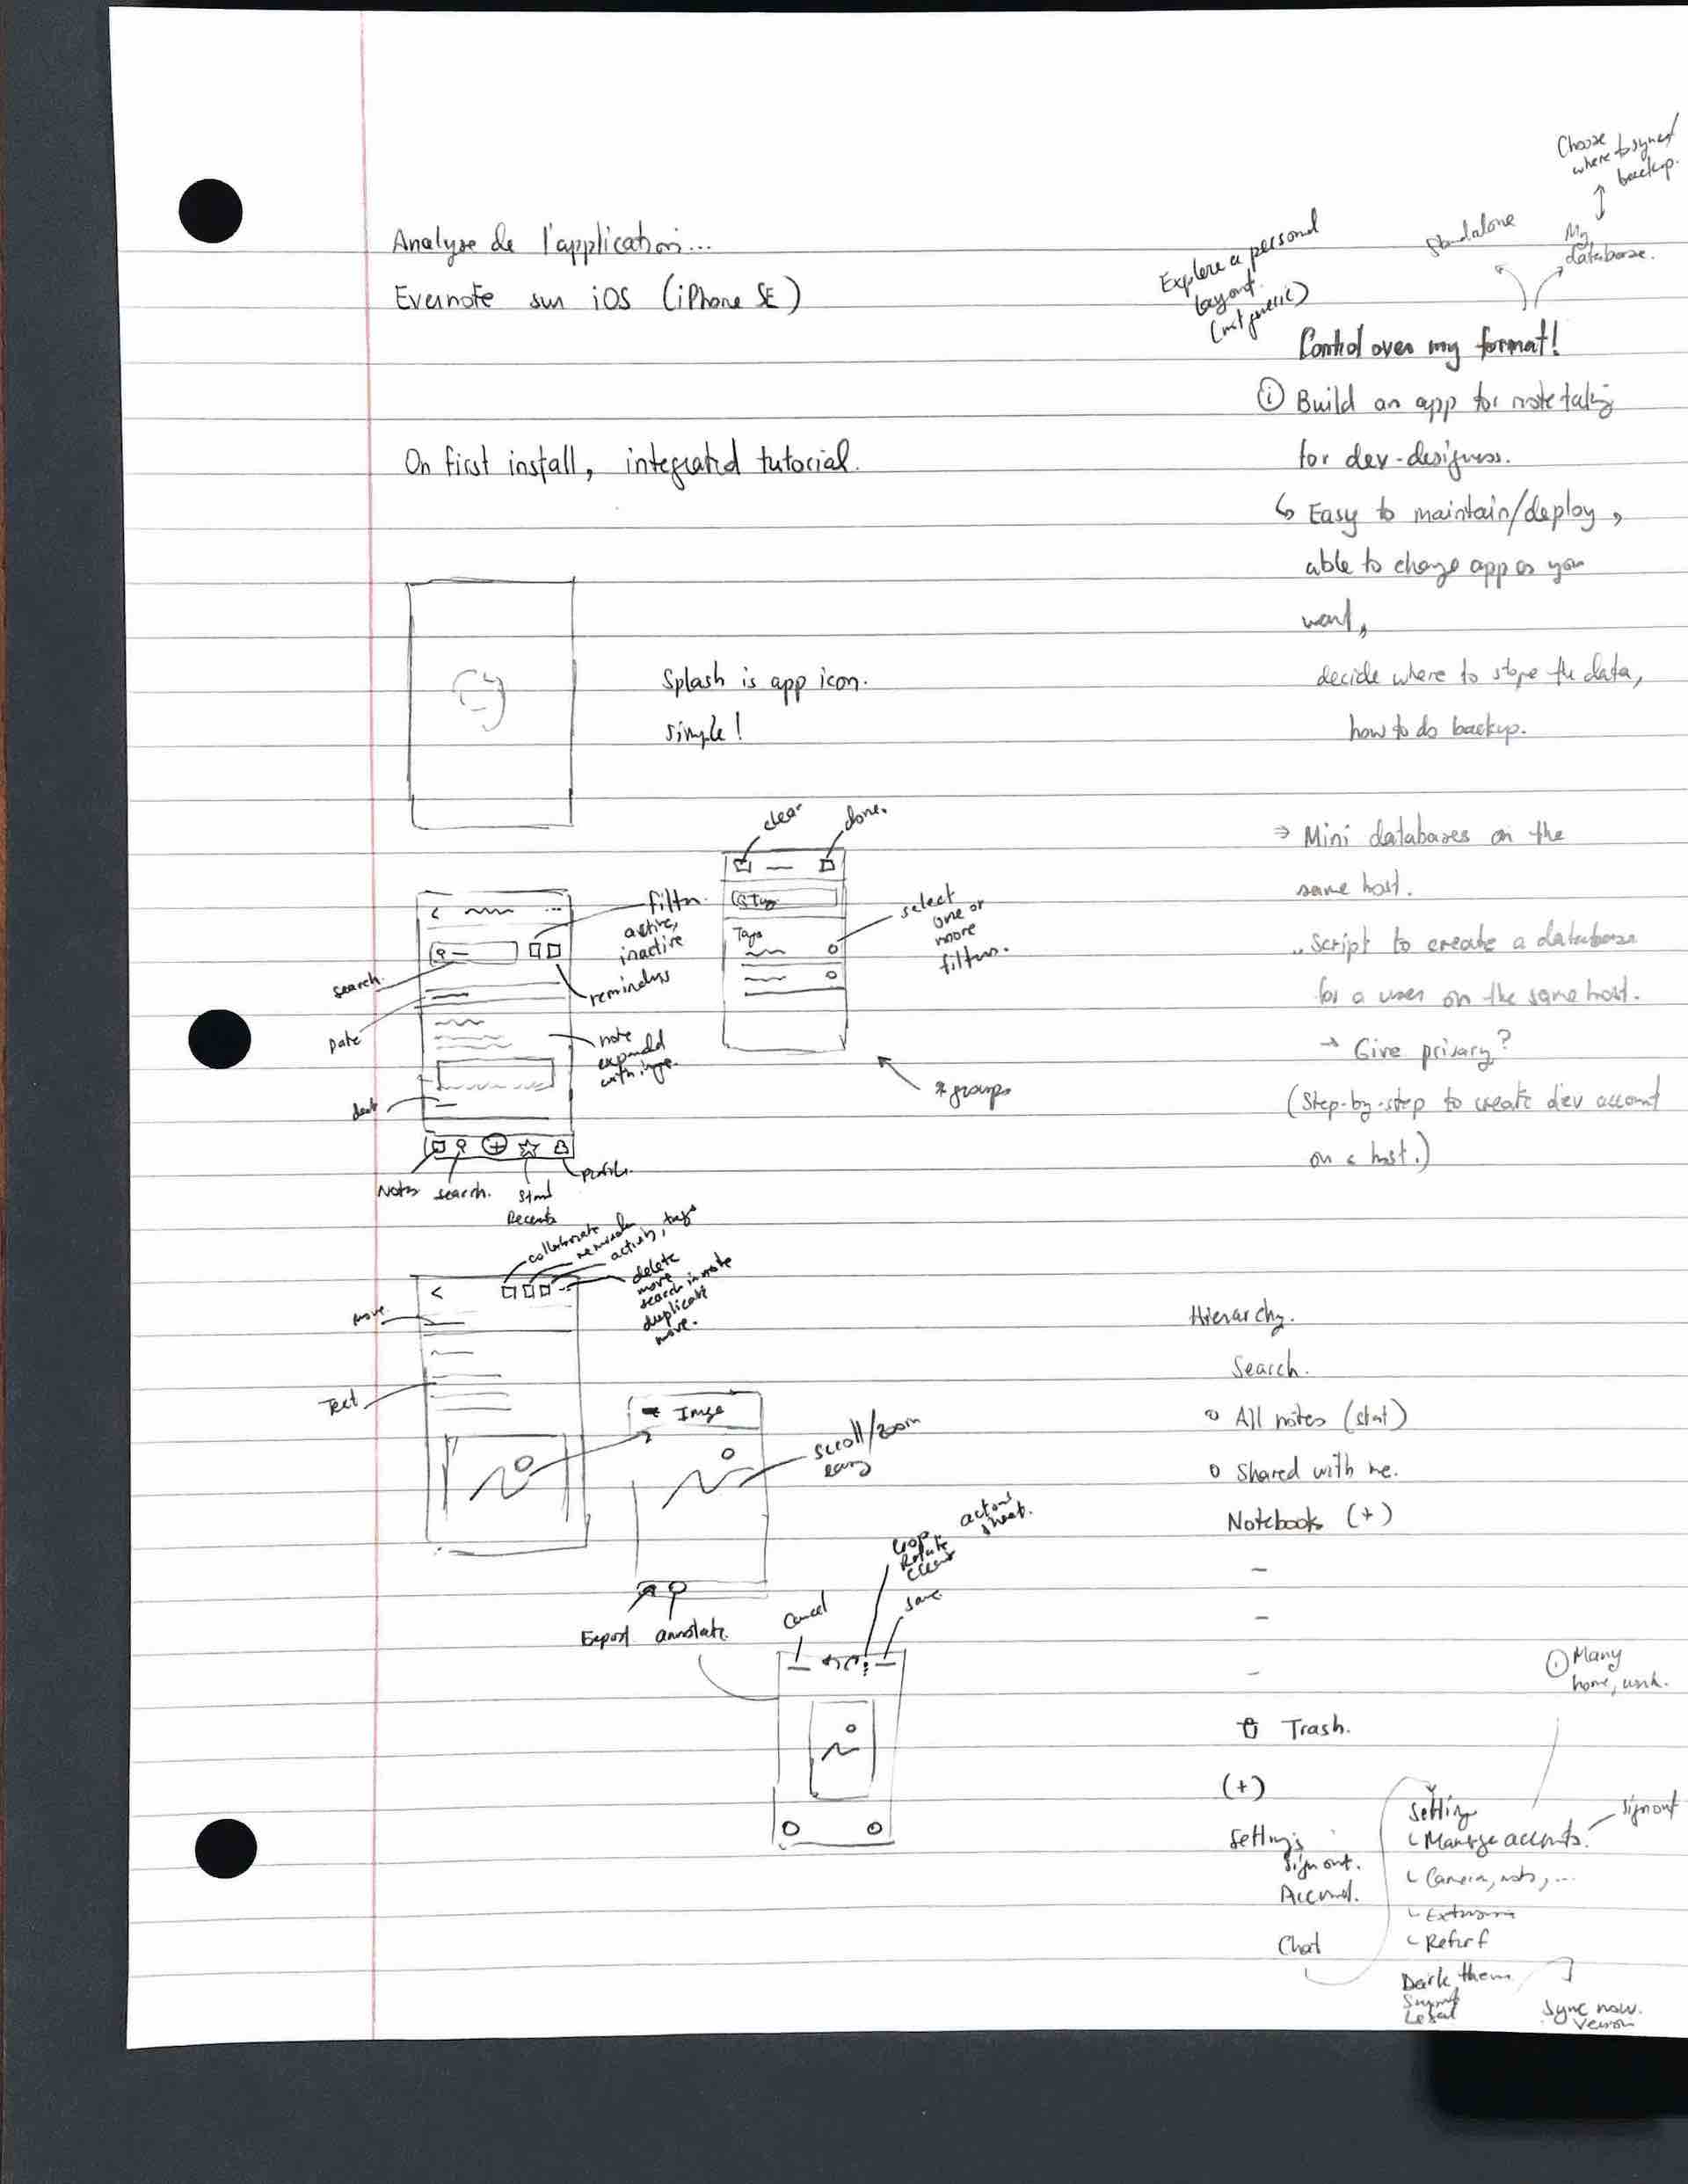 Analyse de l'application...
Evernote sur iOS (iPhone SE)
On first install, integrated tutorial.
Splash is app icon.
simple!
clear
done.
filter.
active,
inactive
reminders
search.
Date
note
expanded
with image.
Tags
select
one or
more
filters.
* groups
Notes
search.
Recents
profile.
collaborate
reminder
activity, tags
delete
move
search in note
duplicate
move.
move
Text
Image
scroll/zoom
easy
Export
annotate.
Cancel
crop
Rotate
save
action
sheet.
Choose
where to sync/
backup.
My
database.
Standalone
Explore a personal
layout.
(not generic)
Control over my format!
① Build an app for note taking
for dev-designers.
↳ Easy to maintain/deploy,
able to change app as you
want,
decide where to store the data,
how to do backup.
⇒ Mini databases on the
same host.
.. Script to create a database
for a user on the same host.
→ Give privacy?
(Step-by-step to create dev account
on a host.)
Hierarchy.
Search.
o All notes (stat)
o Shared with me.
Notebooks (+)
–
–
–
Trash.
(+)
Settings
Sign out.
Account.
Chat
Many
home, work.
Setting
Manage accounts.
Sign out
Camera, nots, ...
Dark theme
Support
Legal
Sync now.
Version